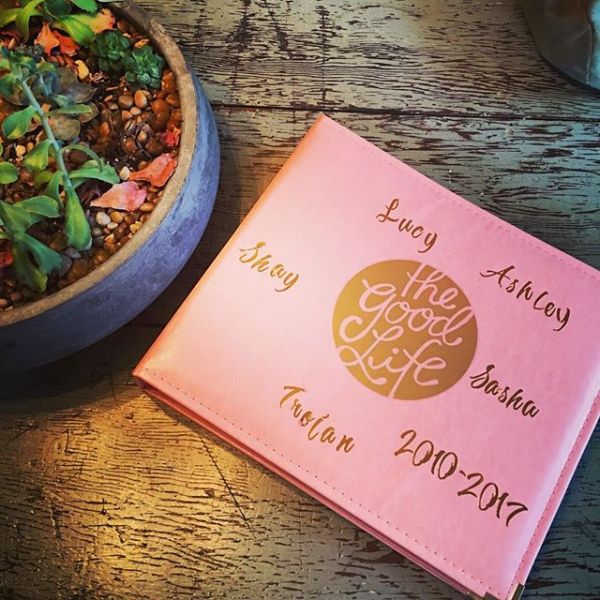 Lucy
Ashley
Shay
the
Good
Life
Sasha
Troian
2010-2017